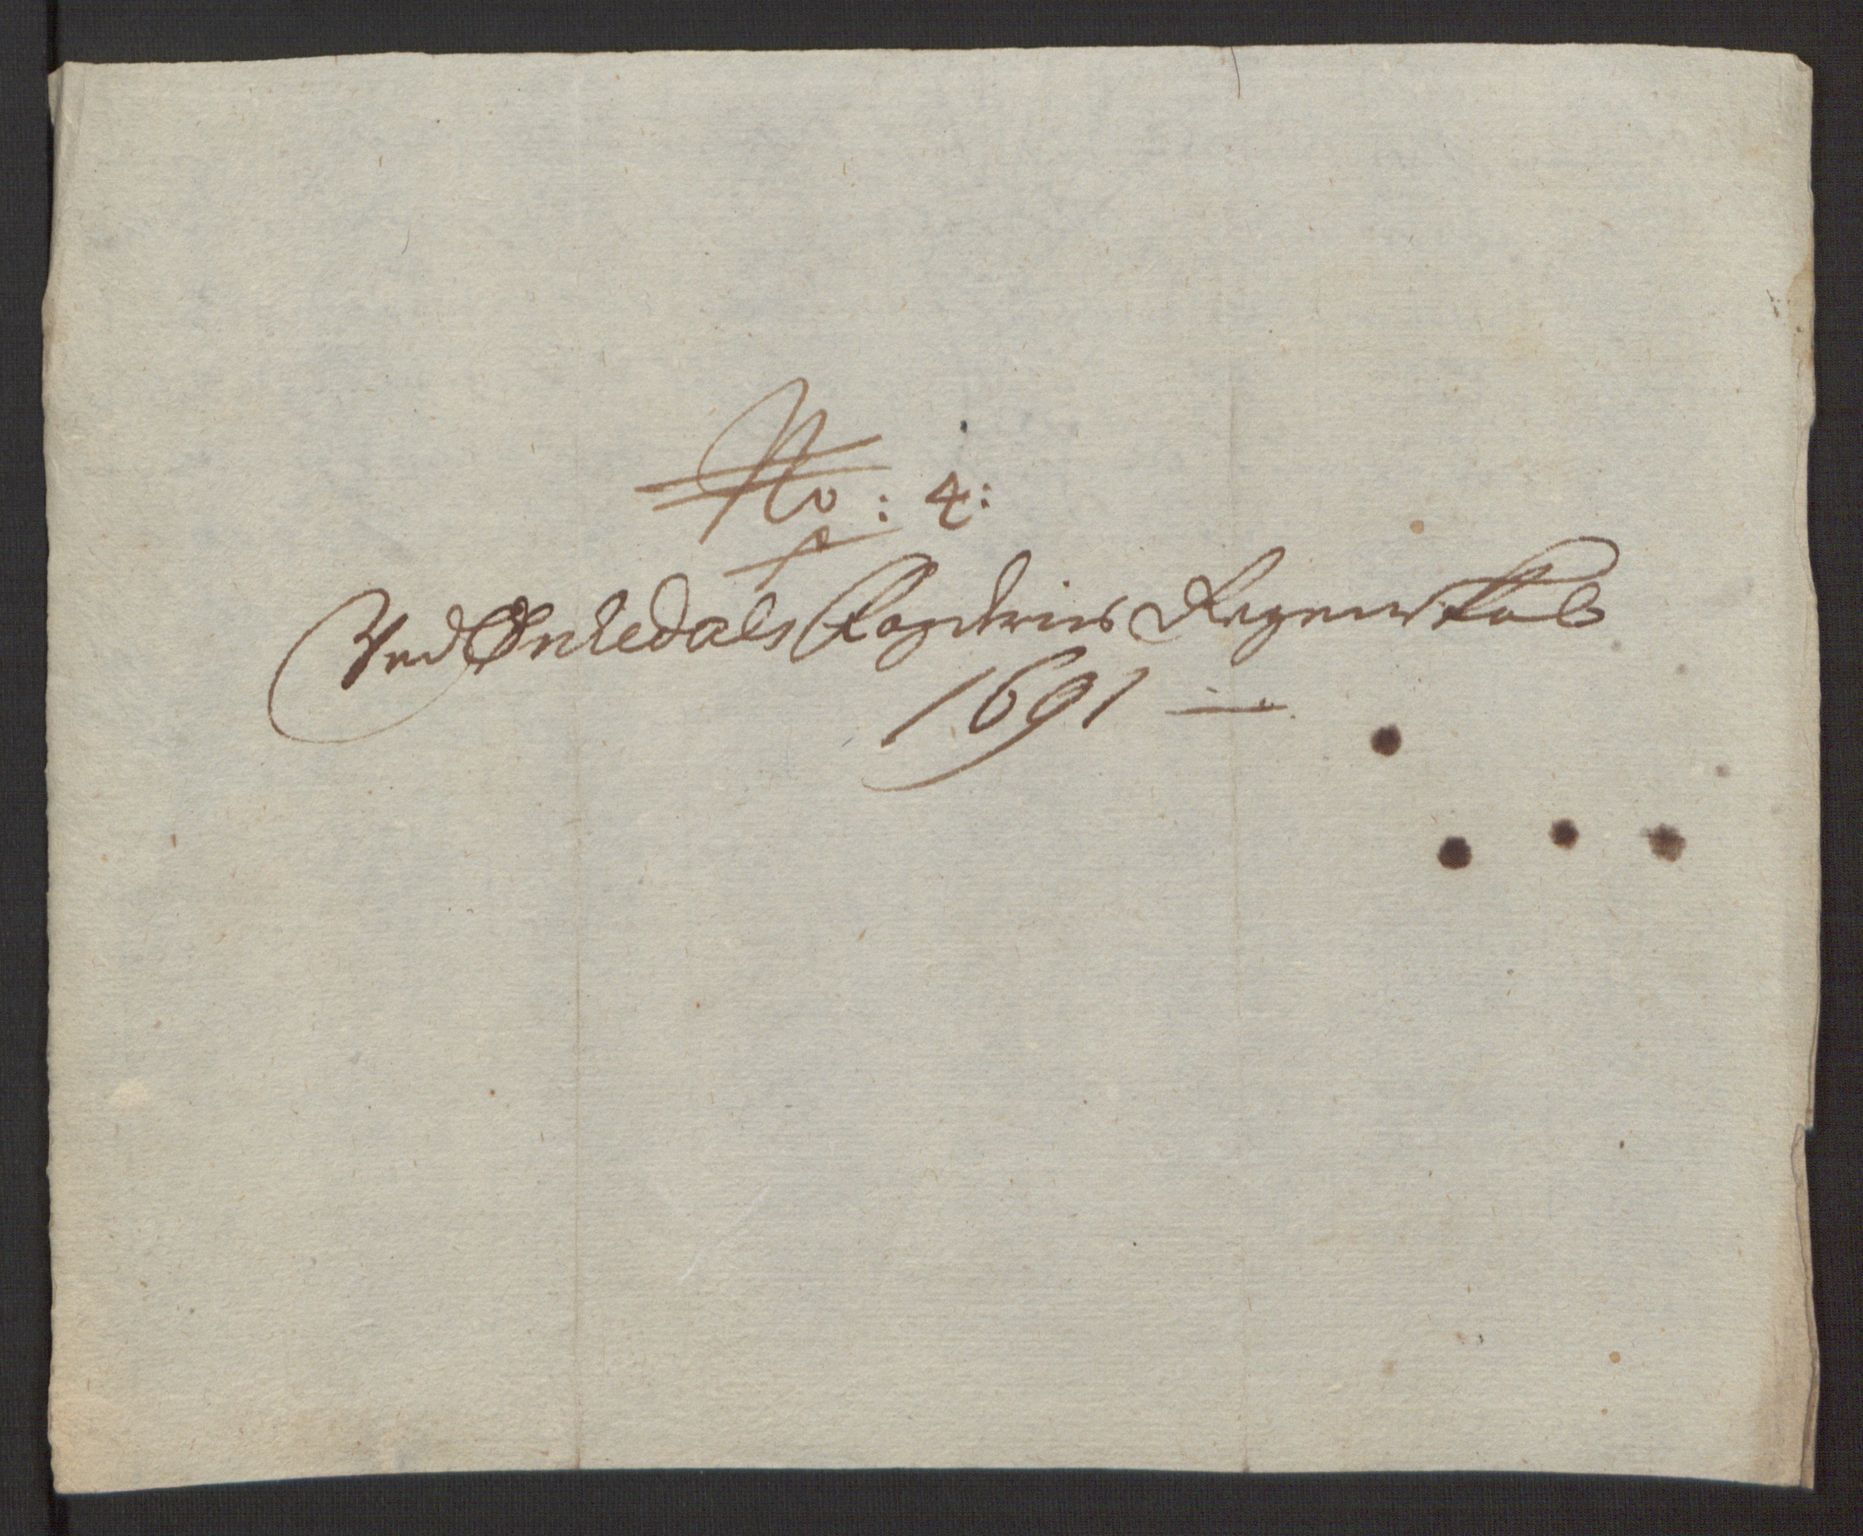 No: 4:
Ved Ørkedals Fogderies Regenskab
1691 —